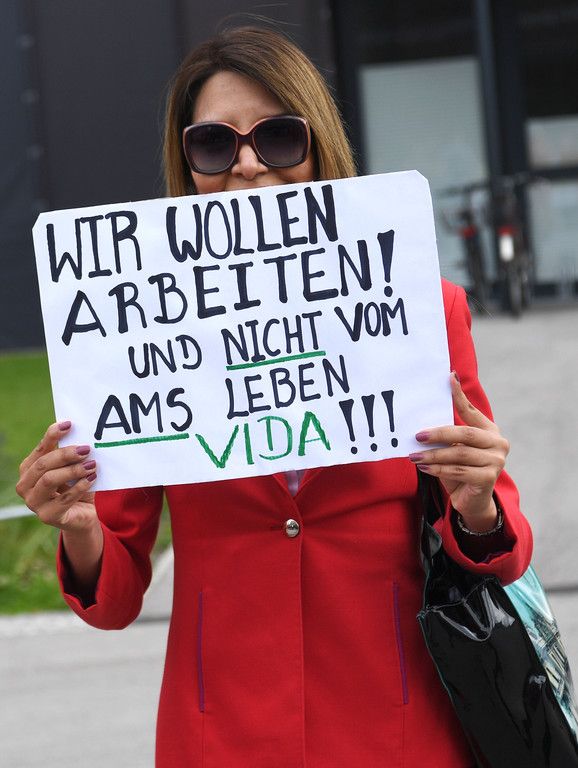 WIR WOLLEN
ARBEITEN!
UND NICHT VOM
AMS LEBEN
VIDA!!!